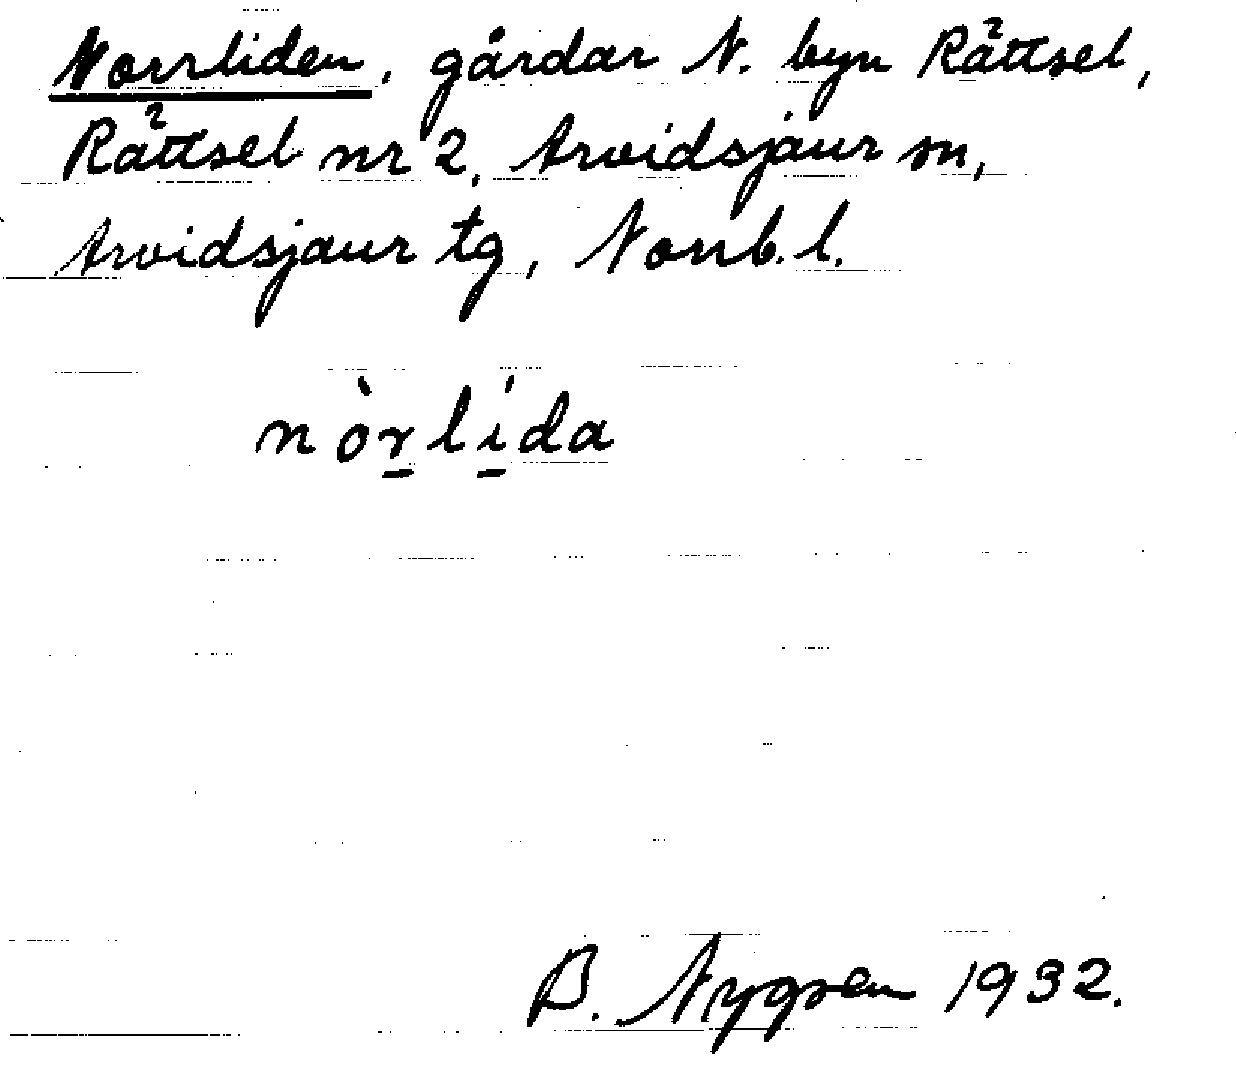 Norrliden, gårdar N. byn Rättsel,
Rättsel nr 2, Arvidsjaur sn,
Arvidsjaur tg, Norrb. l.
nòr̲lí̲da
B. Nygren 1932.